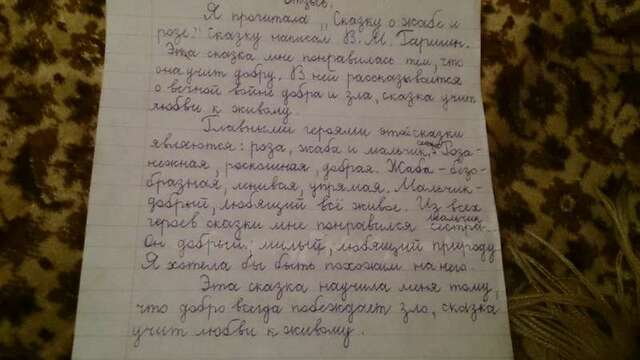 Отзыв.
Я прочитала „Сказку о жабе и
розе." Сказку написал В. М. Гаршин.
Эта сказка мне понравилась тем, что
она учит добру. В ней рассказывается
о вечной войне добра и зла, сказка учит
любви к живому.
Главными героями этой сказки
являются: роза, жаба и мальчик. Роза-
нежная, роскошная, добрая. Жаба - безо-
бразная, ленивая, упрямая. Мальчик-
добрый, любящий всё живое. Из всех
героев сказки мне понравился мальчик
Он добрый, милый, любящий природу
Я хотела бы быть похожим на него.
Эта сказка научила меня тому,
что добро всегда побеждает зло, сказка
учит любви к живому.